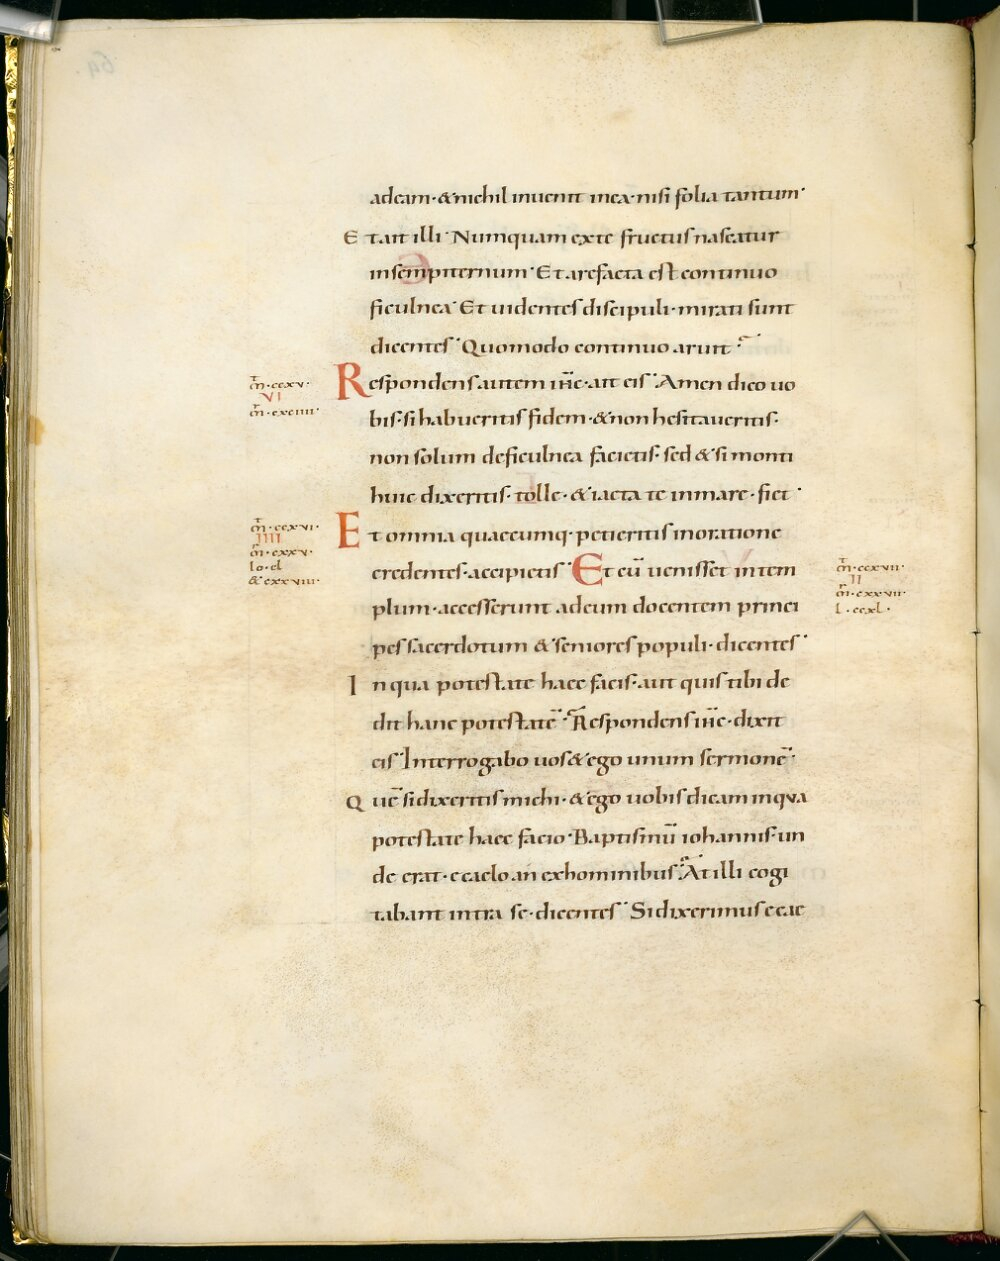 adeam·&nichil inuenit inea·nisi folia tantum·
Et ait illi·Numquam exte fructus nascatur
insempiternum·Et arefacta est continuo
ficulnea·Et uidentes discipuli·mirati sunt
dicentes·Quomodo continuo aruit
Respondens autem ihc·ait eis·Amen dico uo
bis·si habueritis fidem·&non hesitaueritis·
non solum deficulnea facietis·sed &si monti
huic dixeritis·tolle·&iacta te inmare·fiet·
Et omnia quaecumq·petieritis inoratione
credentes·accipietis·Et cū uenisset intem
plum·accesserunt adeum docentem princi
pes sacerdotum &seniores populi·dicentes·
In qua potestate haec facis·aut quis tibi de
dit hanc potestatē·Respondens ihc·dixit
eis·Interrogabo uos&ego unum sermonē·
Quē si dixeritis michi·&ego uobis dicam inqua
potestate haec facio·Baptismū iohannis·un
de erat·ecaelo an exhominibus·At illi cogi
tabant intra se·dicentes·Si dixerimus ecae
m·ccxv·
VI
m·cxciiii·
m·ccxvi·
IIII
m·cxxv·
lo·cl
&cxxviii·
m·ccxvii·
II
m·cxxvii·
l·ccxl·